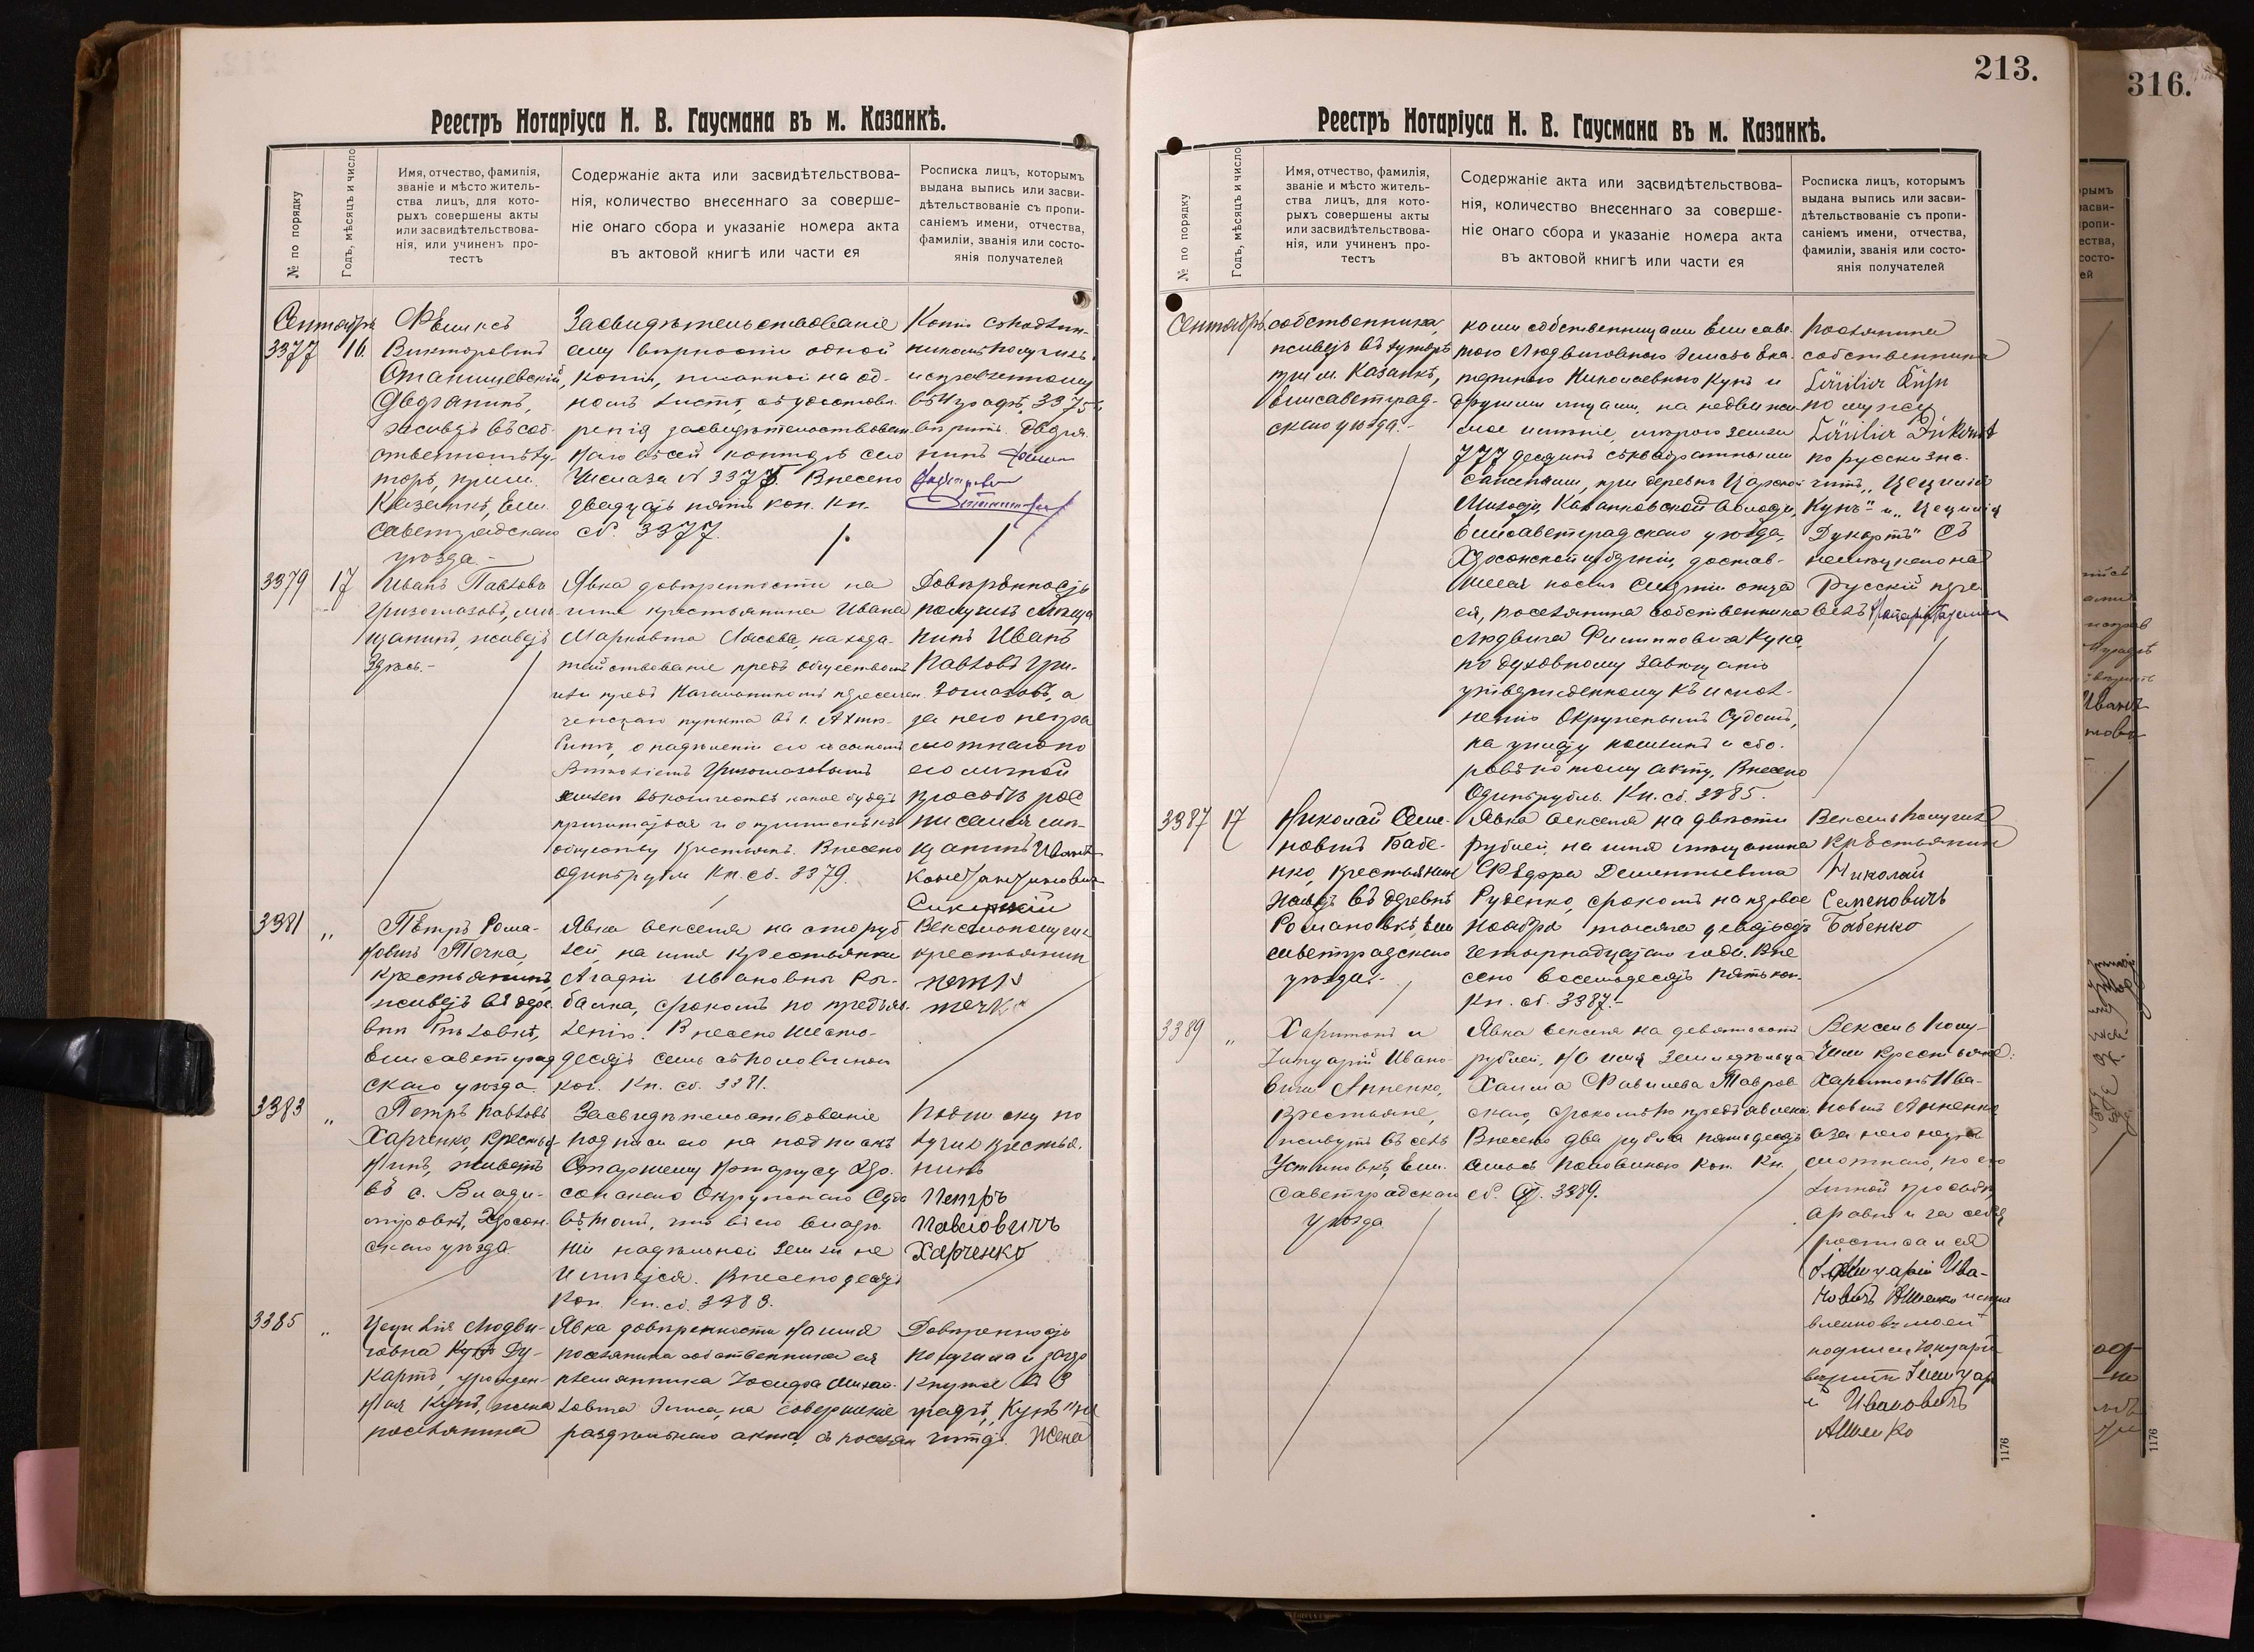 Реестръ Нотаріуса Н. В. Гаусмана въ м. Казанкѣ.
№ по порядку
Годъ, мѣсяцъ и число
Имя, отчество, фамилія,
званіе и мѣсто житель-
ства лицъ, для кото-
рыхъ совершены акты
или засвидѣтельствова-
нія, или учиненъ про-
тестъ
Содержаніе акта или засвидѣтельствова-
нія, количество внесеннаго за соверше-
ніе онаго сбора и указаніе номера акта
въ актовой книгѣ или части ея
Росписка лицъ, которымъ
выдана выпись или засви-
дѣтельствованіе съ пропи-
саніемъ имени, отчества,
фамиліи, званія или состо-
янія получателей
Сентябрь
3377 16.
Феликсъ
Викторовичъ
Станишевскій,
дворянинъ,
живетъ въ соб-
ственномъ ху-
торѣ, при м.
Казанкѣ, Ели-
саветградскаго
уѣзда
Засвидѣтельствованіе
ему вѣрности одной
копіи, писанной на од-
номъ листѣ, съ удостовѣ-
ренія засвидѣтельствован-
наго въ сей конторѣ сего
числа за № 3375. Внесено
двадцать пять коп. Кн.
сб. 3377.
Копію съ подлин-
никомъ получилъ
исправленному
въ II графѣ, 3375
вѣрить. Дворя-
нинъ
3379 17
Иванъ Павловъ
Гризоглазовъ, мѣ-
щанинъ, живетъ
здѣсь.-
Явка довѣренности на
имя крестьянина Ивана
Марковича Лясова, на хода-
тайствованіе предъ обществомъ
или предъ Начальникомъ переселен-
ческаго пункта въ г. Ахтю-
о надѣленіи его съ сыномъ
Гризоглазовымъ
землею въ количествѣ какое будетъ
причитаться и о припискѣ къ
обществу крестьянъ. Внесено
одинъ рубль Кн. сб. 3379.
Довѣренность
получилъ мѣща
нинъ Иванъ
Павловъ Гри-
зоглазовъ, а
за него негра
мотнаго по
его личной
просьбѣ рос
писался мѣ-
щанинъ Иванъ
Константиновичъ
3381 „
Петръ Рома-
новичъ Течка,
крестьянинъ,
живетъ въ дере
внѣ
Елисаветград
скаго уѣзда
Явка векселя на сто руб
лей, на имя крестьянки
Агафіи Ивановны Ры-
балка, срокомъ по предъяв-
ленію. Внесено шесть-
десятъ семь съ половиной
коп. Кн. сб. 3381.
Вексель получилъ
крестьянин
петръ
течка
3383 „
Петръ Павловъ
Харченко, крестья
нинъ, живетъ
въ с. Влади-
міровкѣ, Херсон-
скаго уѣзда
Засвидѣтельствованіе
подписи его на подпискѣ
Старшему Нотаріусу Хер-
сонскаго Окружнаго Суда
въ томъ, что въ его владѣ-
ніи надѣльной земли не
имѣется. Внесено десять
Коп. Кн. сб. 3383.
Подписку по
лучил крестья-
нинъ
Петръ
Павловичъ
Харченко
3385 „
Цецилія Людви-
говна Ду-
картъ, урожден-
ная Кунъ, жена
поселянина
Явка довѣренности на имя
поселянина собственника ея
племянника Іосифа Михай-
ловича на совершеніе
раздѣльнаго акта, съ поселян
Довѣренность
получила и
въ 3
графѣ, „Кунъ" не
читать. Жена
213.
Реестръ Нотаріуса Н. В. Гаусмана въ м. Казанкѣ.
№ по порядку
Годъ, мѣсяцъ и число
Имя, отчество, фамилія,
званіе и мѣсто житель-
ства лицъ, для кото-
рыхъ совершены акты
или засвидѣтельствова-
нія, или учиненъ про-
тестъ
Содержаніе акта или засвидѣтельствова-
нія, количество внесеннаго за соверше-
ніе онаго сбора и указаніе номера акта
въ актовой книгѣ или части ея
Росписка лицъ, которымъ
выдана выпись или засви-
дѣтельствованіе съ пропи-
саніемъ имени, отчества,
фамиліи, званія или состо-
янія получателей
Сентябрь
собственника,
живетъ въ хуторѣ
при м. Казанкѣ,
Елисаветград-
скаго уѣзда.-
ками собственницами Елисаве-
тою Людвиговною Ека-
териною Николаевною Кунъ и
другими лицами, на недвижи-
мое имѣніе, мѣрою земли
777 десятинъ съ квадратными
саженями, при деревнѣ Царской
Милости, Казанковской волости,
Елисаветградскаго уѣзда,
Херсонской губерніи, достав-
шееся послѣ смерти отца
ея, поселянина собственника
Людвига Филипповича Куна,
по духовному завѣщанію
утвержденному къ испол-
ненію Окружнымъ Судомъ,
на уплату пошлинъ и сбо-
ровъ по тому акту. Внесено
Одинъ рубль. Кн. сб. 3385.
поселянина
собственника
Cäcilia Kuhn
по мужу
Cäcilia Dukart
по русски зна-
читъ „Цецилія
Кунъ" и „Цецилія
Дукартъ" Съ
немецкаго на
Русскій пере
велъ
3387 17
Николай Семе-
новичъ Бабе-
нко, крестьянинъ
живетъ въ деревнѣ
Романовкѣ, Ели
саветградскаго
уѣзда.-
Явка векселя на двѣсти
рублей, на имя мѣщанина
Федора Дементьевича
Руденко, срокомъ на первое
Ноября тысяча девятьсотъ
четырнадцатаго года. Вне
сено восемьдесятъ пять коп.
Кн. сб. 3387.-
Вексель получилъ
крѣстьянинъ
Николай
Семеновичъ
Бабенко
3389 „
Харитонъ и
Януарій Ивано-
вичи Анненко,
крестьяне,
живутъ въ селѣ
Устиновкѣ, Ели-
саветградскаго
уѣзда
Явка векселя на девятьсотъ
рублей, на имя земледѣльца
Хаима Тавров-
скаго, срокомъ по предъявленію.
Внесено два рубля пятьдесятъ
семь съ половиною коп. Кн.
сб. 3389.
Вексель полу-
чили крестьяне:
Харитонъ Ива-
новичъ Анненко
а за него негра
мотнаго, по его
личной просьбѣ
и за себя
росписался
Януарій Ива-
новичъ Анненко
въ моей
подписи Януарій
вѣрить Януар
ій Ивановичъ
Аненко
1176
316.
1176